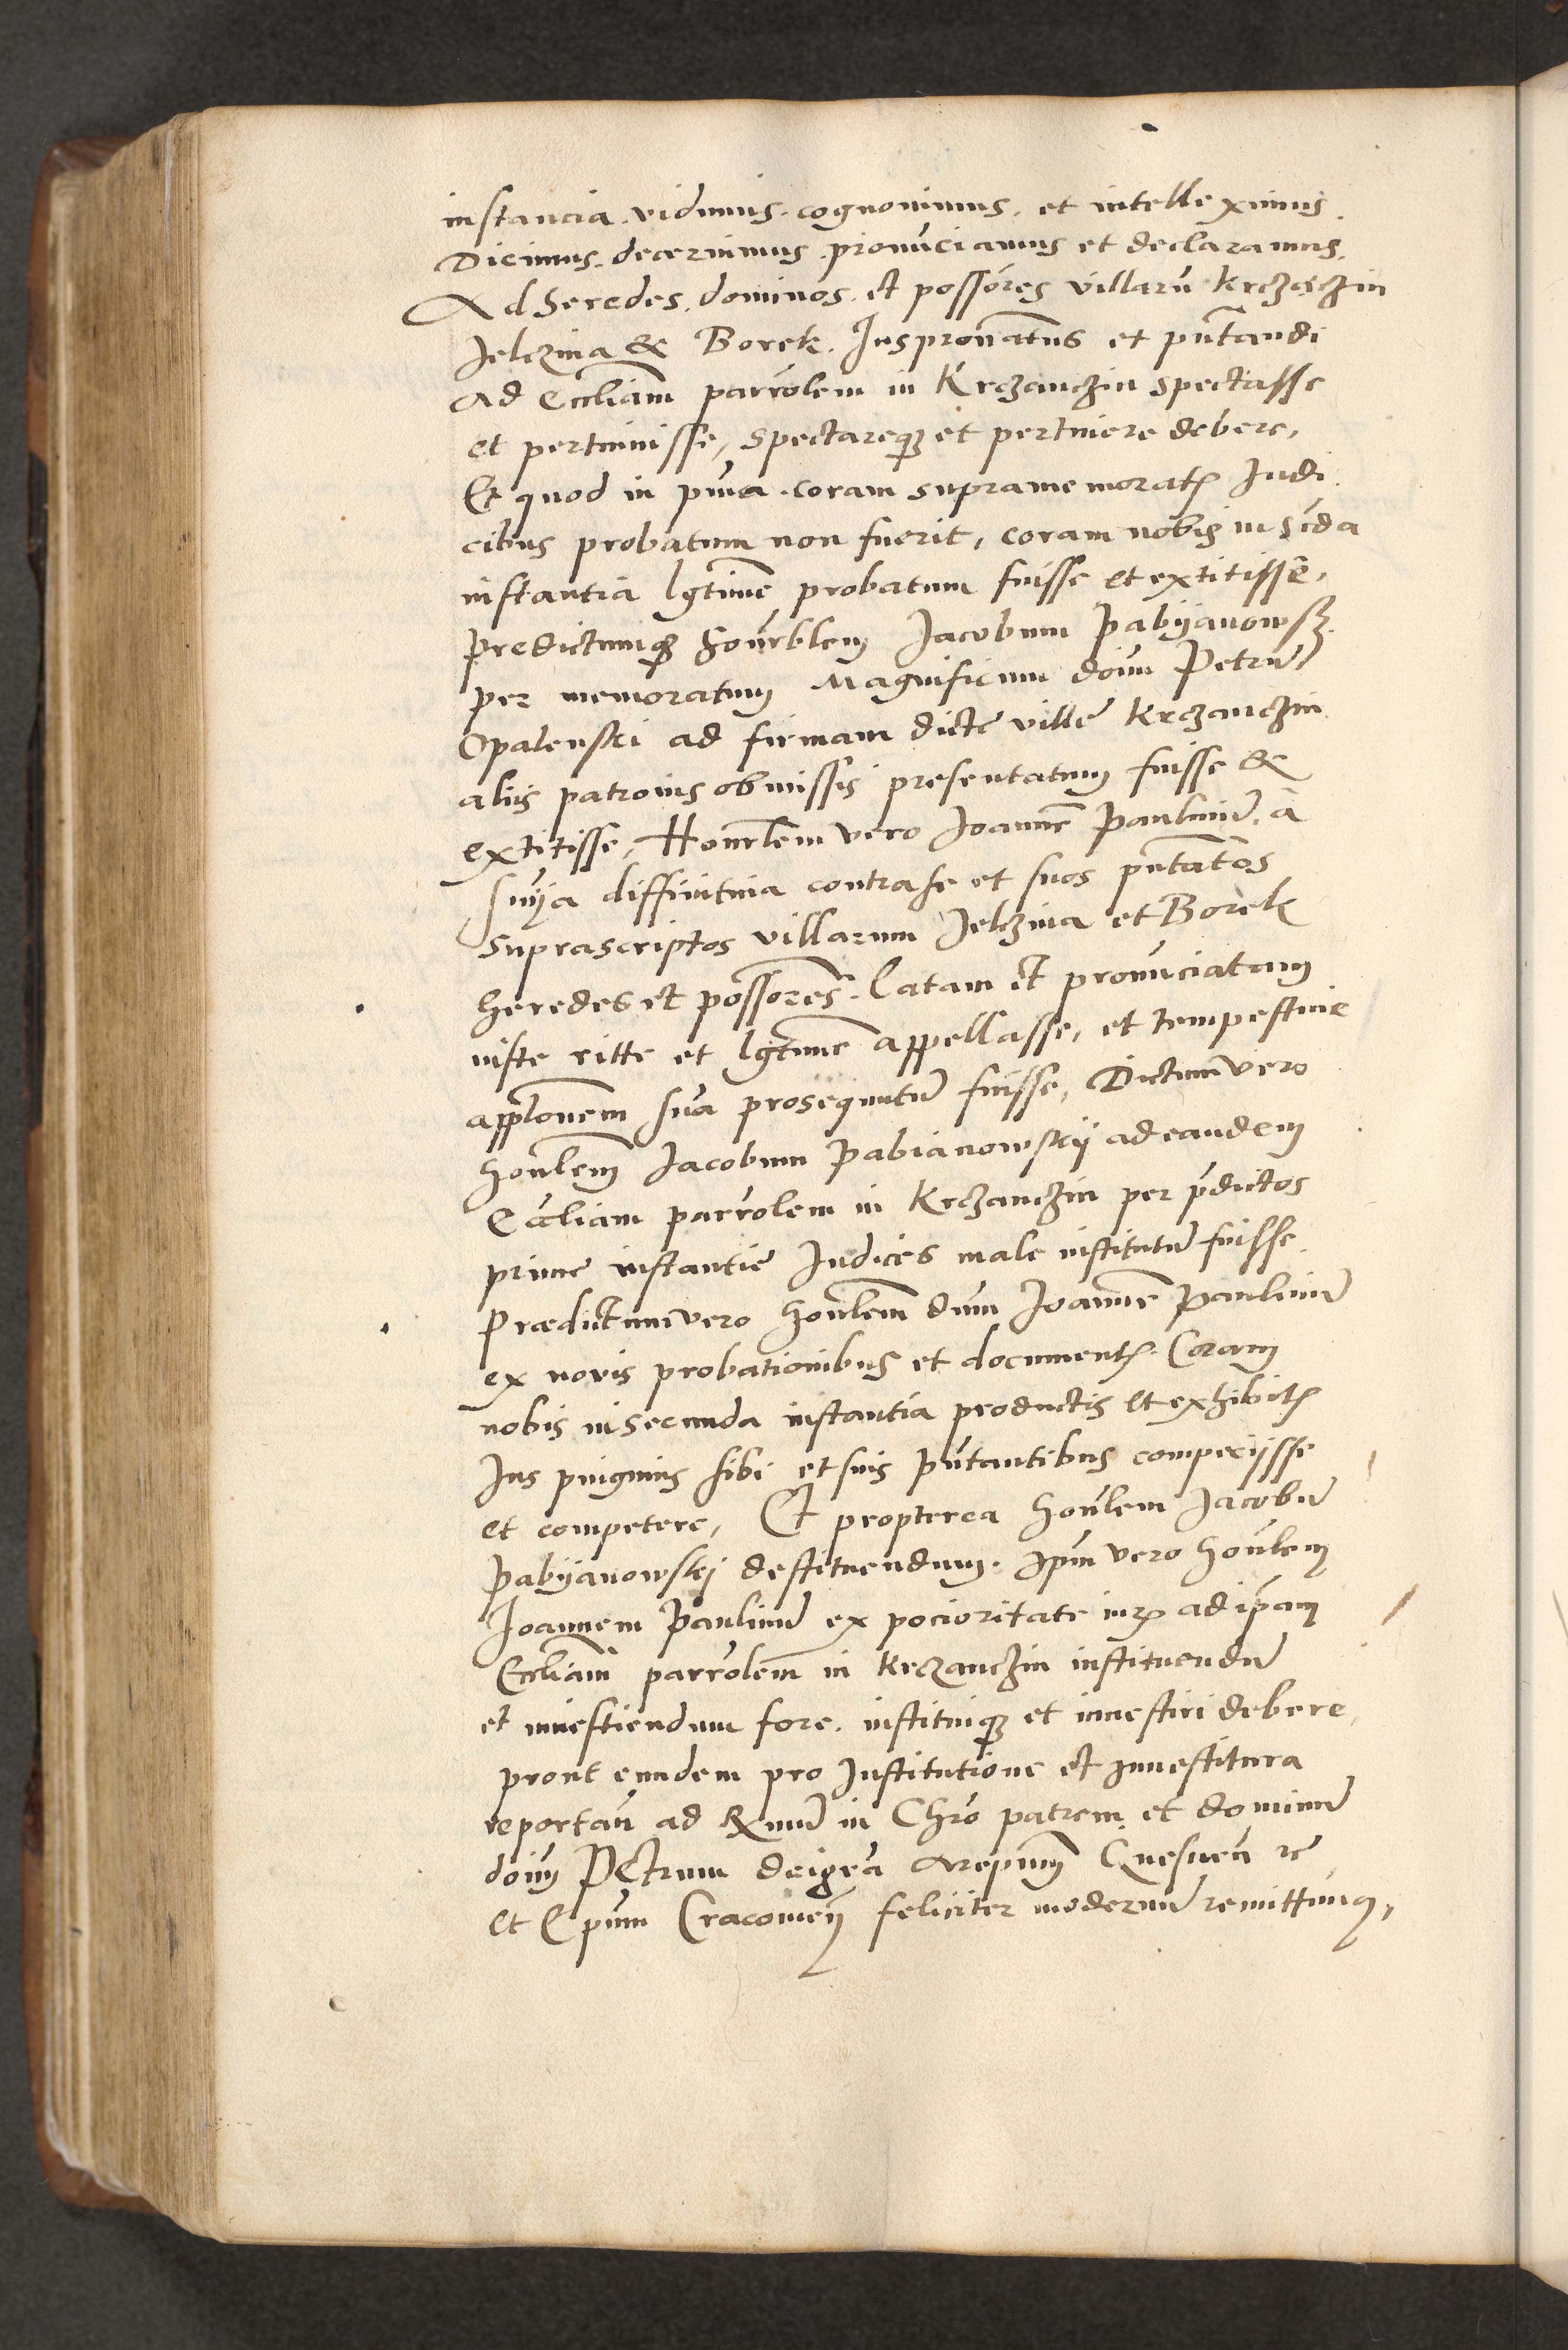 instancia. vidimus. cognovimus. et intelleximus.
Dicimus. decernimus. pronūciamus et declaramus.
Ad heredes. dominos. et possōres villarū Krczęczin
Jelczina & Borek. Juspronatus et pn̄tandi
ad Eccliam parrōlem in Krczanczin spectasse
et pertinuisse, spectareqꝫ et pertinere debere,
Et quod in p̄ma. coram supramemoratꝭ Judi
cibus probatum non fuerit, coram nobis in scd̄a
instantia lgtīme probatum fuisse et extitisse,
predictumqꝫ honr̄blem Jacobum Pabyanowsꝫ.
per memoratum Magnificum dōnm Petrū
Opalenski ad firmam dicte ville Krczanczin
aliis patronis obmissis presentatum fuisse &
extitisse, Honr̄lem vero Joannē Paulinū. à
sn̄ya diffinitiva contra se et suos pn̄tatos
suprascriptos villarum Jelczina et Borek
heredes et possores. latam et pronūciatam
iuste ritte et lgtīme appellasse, et tempestive
applōnem suā prosequutū fuisse, Dictum vero
honr̄lem Jacobum Pabianowskÿ ad eandem
Eccliam parrōlem in Krczanczin per p̄dictos
prime instantie Judices male institutū fuisse.
Prædictum vero honr̄lem dnm̄ Joannē Paulinū
ex novis probationibus et documentꝭ. Coram
nobis in secunda instantia productis et exhibitꝭ
Jus pinguius sibi et suis pn̄tantibus competiisse
et competere, Et propterea honr̄lem Jacobū
Pabyanowskj destituendum. Ipm̄ vero honr̄lem
Joannem Paulinū ex pocioritate iurꝭ ad ip̄am
Eccliam parrōlem in Krczanczin instituendū
et investiendum fore. instituiqꝫ et investiri debere,
prout eundem pro Institutione et Investitura
reportan̄ ad Rx̄mū in Chr̄o patrem et dominū
dōnm Petrum dei gr̄a Arepūm Gnesnen̄ rc̄
et Epum Cracovien̄ feliciter modernū remittimꝯ,